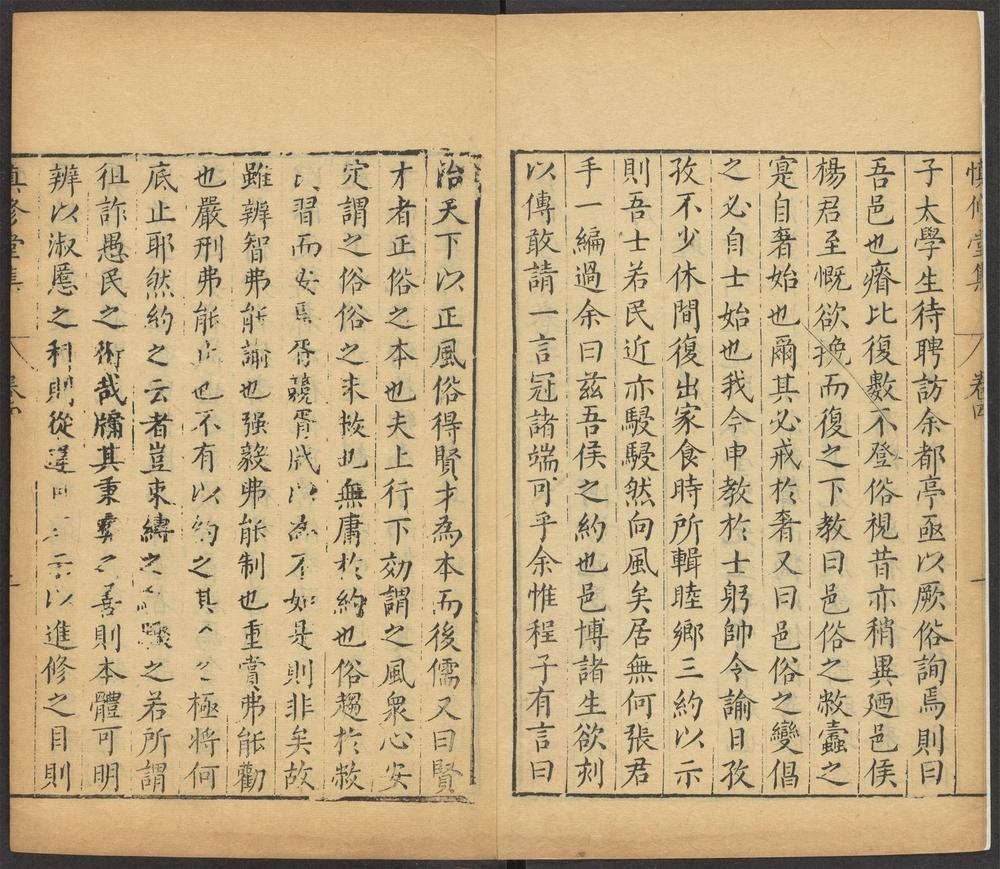 慎修堂集 卷四 一
子太學生待聘訪余都亭亟以厥俗詢焉則曰
吾邑也瘠比復數不登俗視昔亦稍異廼邑侯
楊君至慨欲挽而復之下教曰邑俗之敝蠹之
寔自奢始也爾其必戒於奢又曰邑俗之變倡
之必自士始也我今申教於士躬帥令諭日孜
孜不少休間復出家食時所輯睦鄉三約以示
則吾士若民近亦駸駸然向風矣居無何張君
手一編過余曰茲吾侯之約也邑博諸生欲刻
以傳敢請一言冠諸端可乎余惟程子有言曰
治天下以正風俗得賢才為本而後儒又曰賢
才者正俗之本也夫上行下効謂之風衆心安
定謂之俗俗之未敝也無庸於約也俗趨於敝
習而安焉胥競胥成以為不如是則非矣故
雖辨智弗能諭也强毅弗能制也重賞弗能勸
也嚴刑弗能止也不有以約之其極將何
底止耶然約之云者豈束縛之驟之若所謂
徂詐愚民之術哉牖其秉彝之善則本體可明
辨以淑慝之利則從違示以進修之目則
慎修堂集 卷